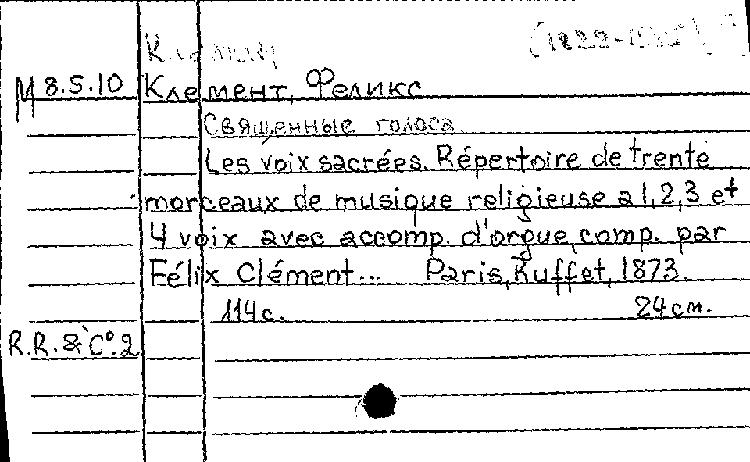 М 8.5.10 Клемент, Феликс
Священные голоса
Les voix sacrées. Répertoire de trente
morceaux de musique religieuse a 1, 2, 3 et
4 voix avec accomp. d'orgue, comp. par
Félix Clément... Paris, Ruffet, 1873.
114 с. 24 см.
R.R. & C°. 2